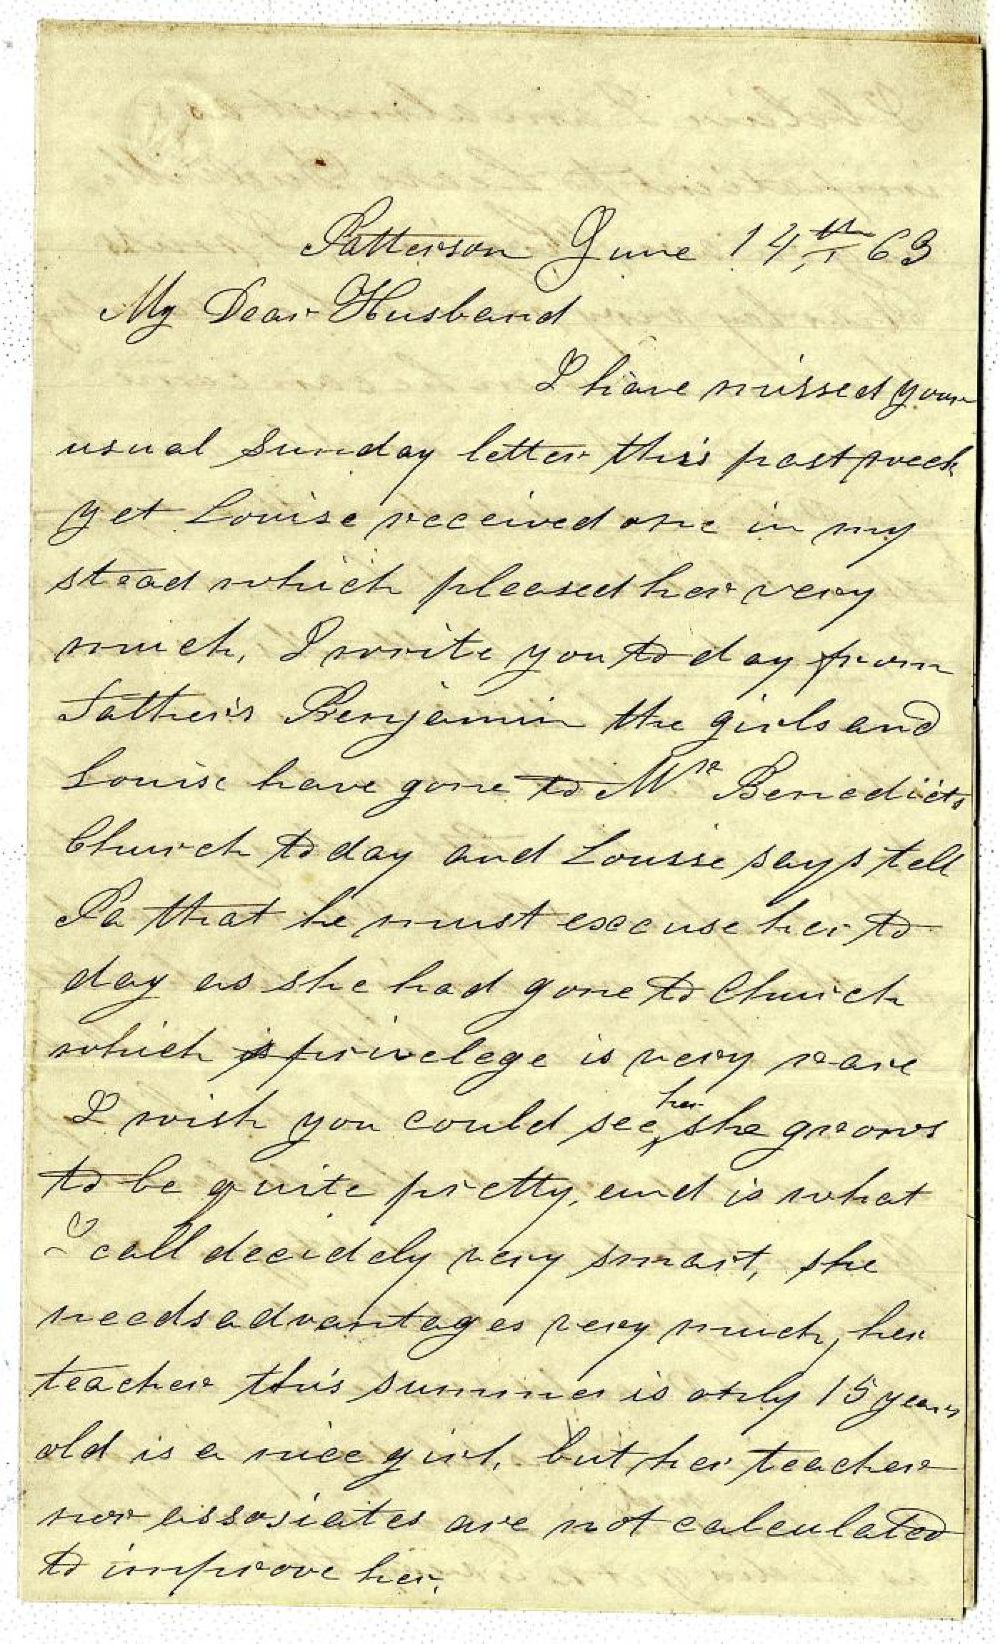 Patterson June 14th, 63
My Dear Husband
I have missed your
usual Sunday letter this past week
yet Louise received one in my
stead which pleased her very
much, I write you to day from
Father's Benjamin the girls and
Louise have gone to Mr Benedicts
Church to day and Louise says tell
Pa that he must excuse her to
day as she had gone to Church
which privelege is very rare
I wish you could see her she grows
to be quite pretty, and is what
I call decidely very smart, she
needs advantages very much, her
teacher this summer is only 15 years
old is a nice girl, but her teacher
nor assosiates are not calculated
to improve her.